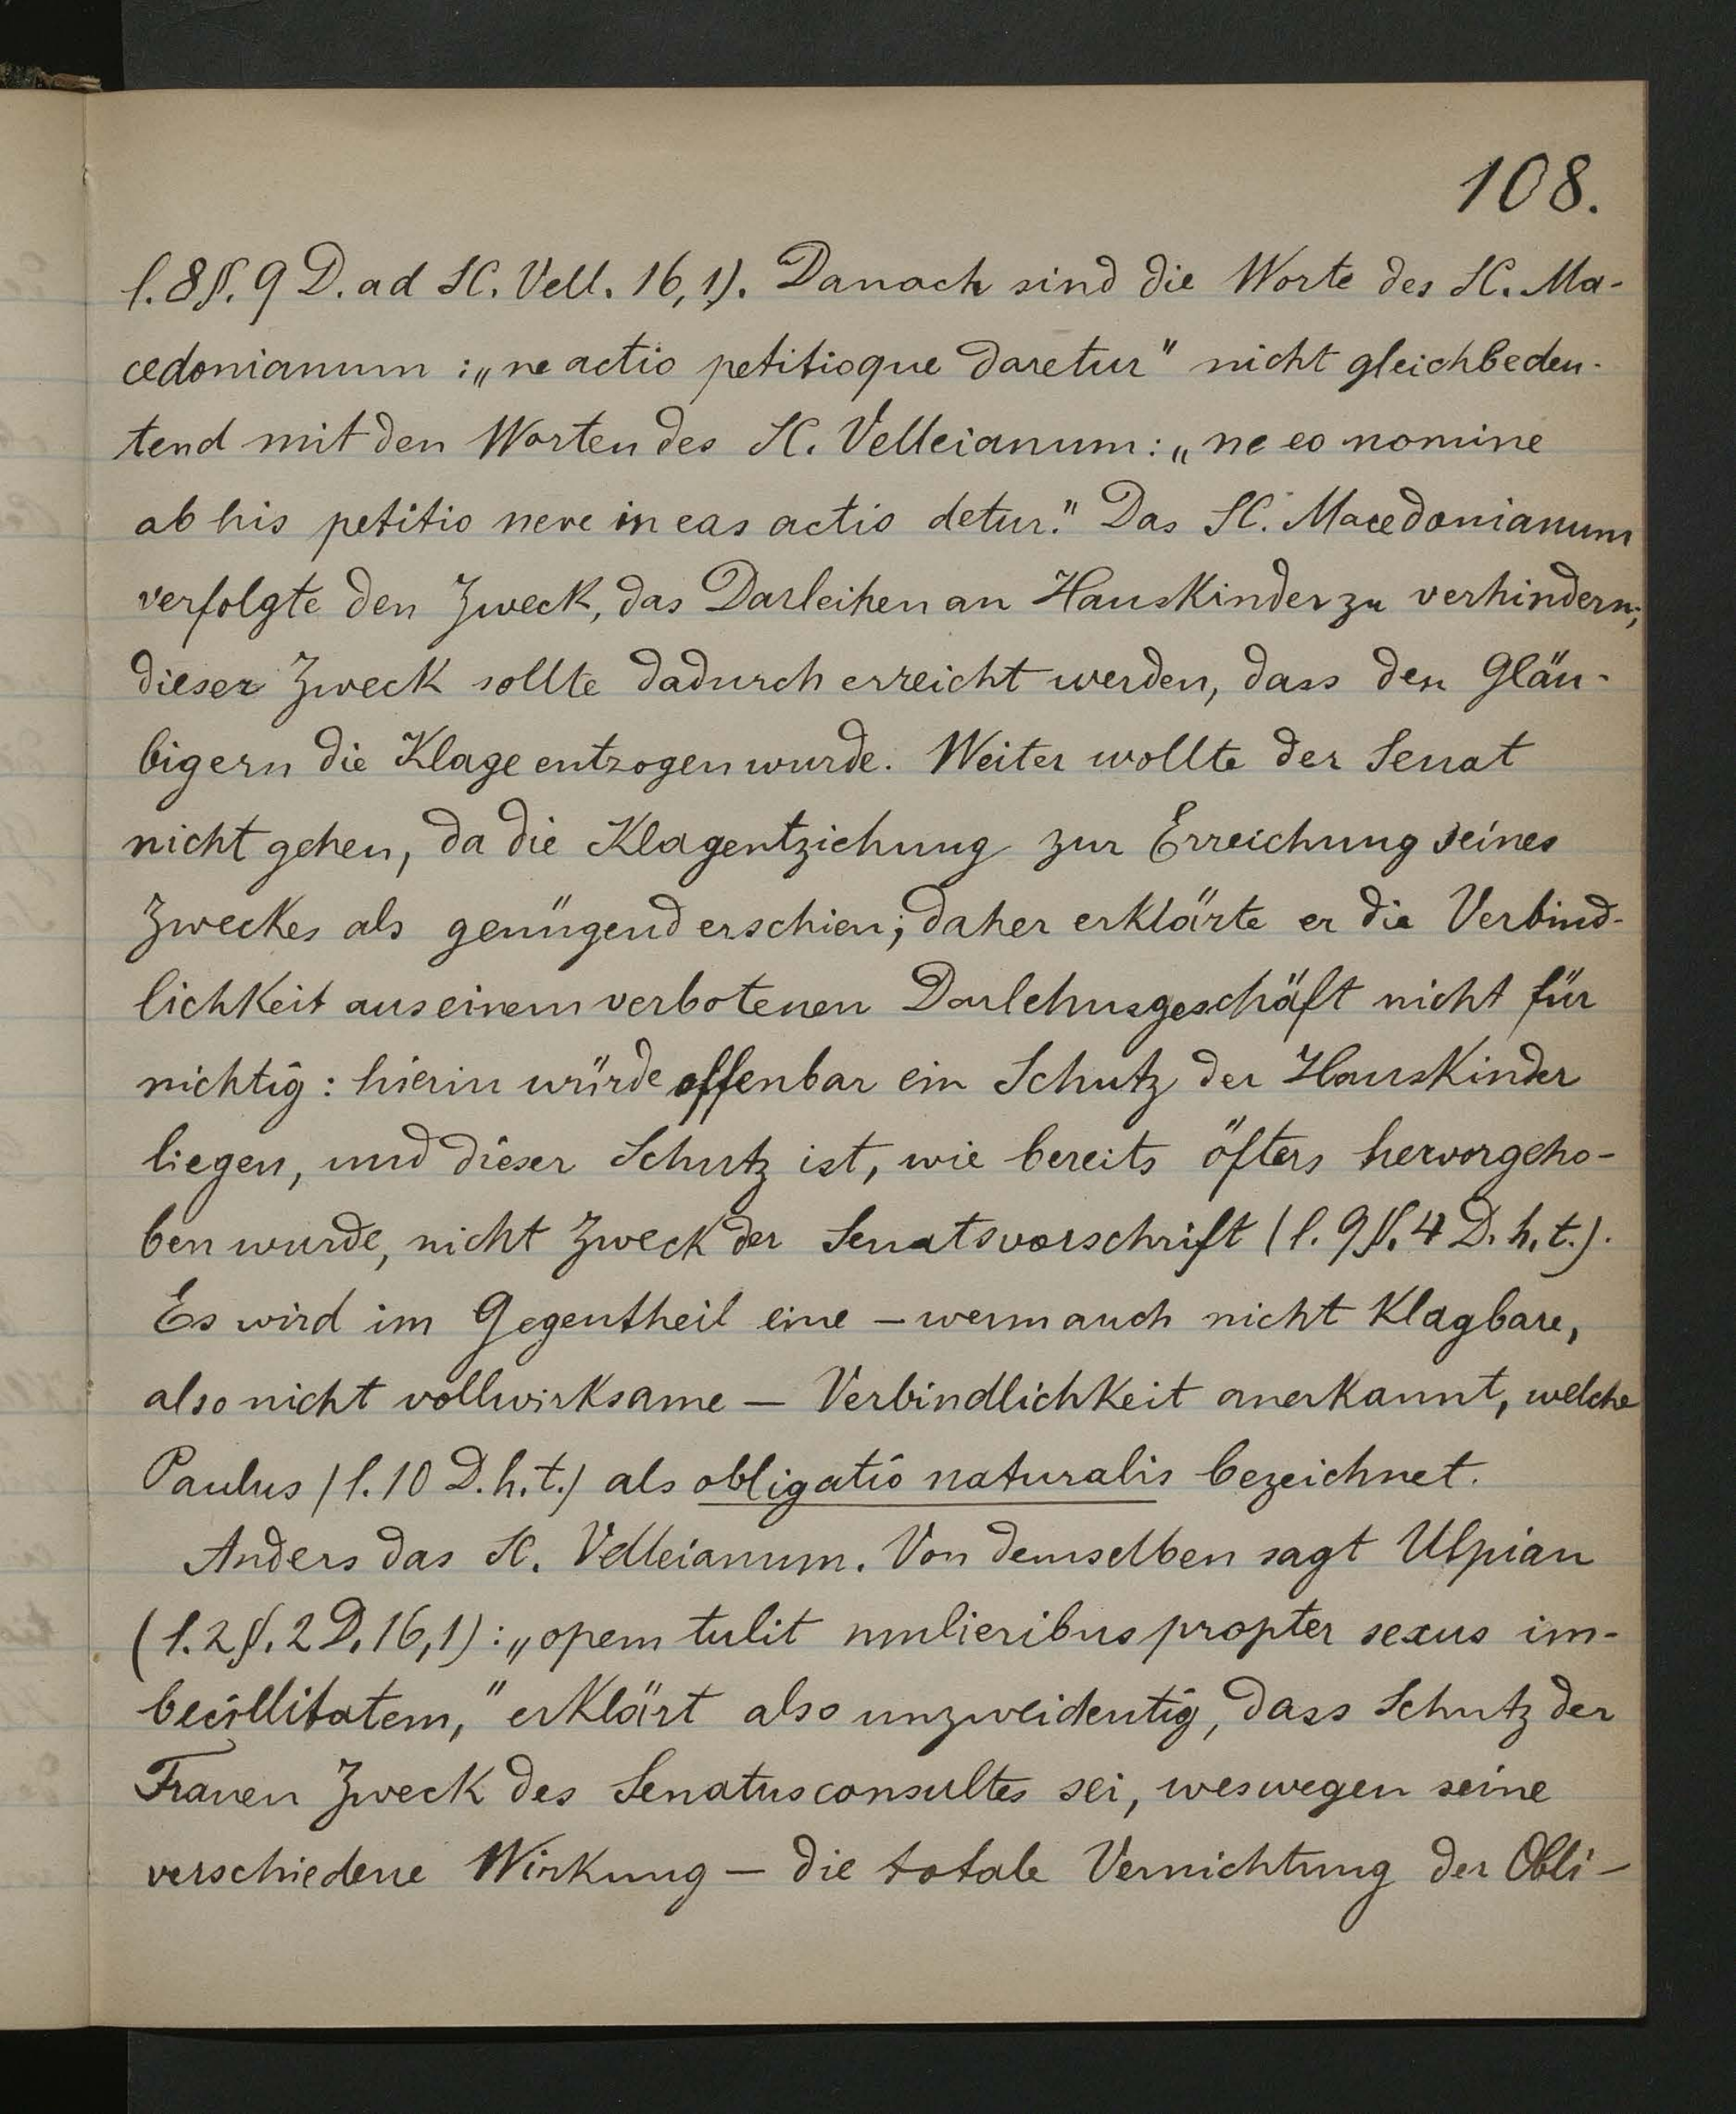 108.
l. 8 §. 9 D. ad SC. Vell. 16,1). Danach sind die Worte des SC. Ma-
cedonianum : „ne actio petitioque daretur" nicht gleichbedeu-
tend mit den Worten des SC. Velleianum: „ne eo nomine
ab his petitio neve in eas actio detur." Das SC. Macedonianum
verfolgte den Zweck, das Darleihen an Hauskinder zu verhindern;
dieser Zweck sollte dadurch erreicht werden, dass den Gläu-
bigern die Klage entzogen wurde. Weiter wollte der Senat
nicht gehen, da die Klagentziehung zur Erreichung seines
Zweckes als genügend erschien; daher erklärte er die Verbind-
lichkeit aus einem verbotenen Darlehnsgeschäft nicht für
nichtig : hierin würde offenbar ein Schutz der Hauskinder
liegen, und dieser Schutz ist, wie bereits öfters hervorgeho-
ben wurde, nicht Zweck der Senatsvorschrift (l. 9 §. 4 D. h. t.).
Es wird im Gegentheil eine – wenn auch nicht klagbare,
also nicht vollwirksame – Verbindlichkeit anerkannt, welche
Paulus (l. 10 D. h. t.) als obligatio naturalis bezeichnet.
Anders das SC. Velleianum. Von demselben sagt Ulpian
(l. 2 §. 2 D. 16,1) : „opem tulit mulieribus propter sexus im-
becillitatem," erklärt also unzweideutig, dass Schutz der
Frauen Zweck des Senatusconsultes sei, weswegen seine
verschiedene Wirkung – die totale Vernichtung der Obli-